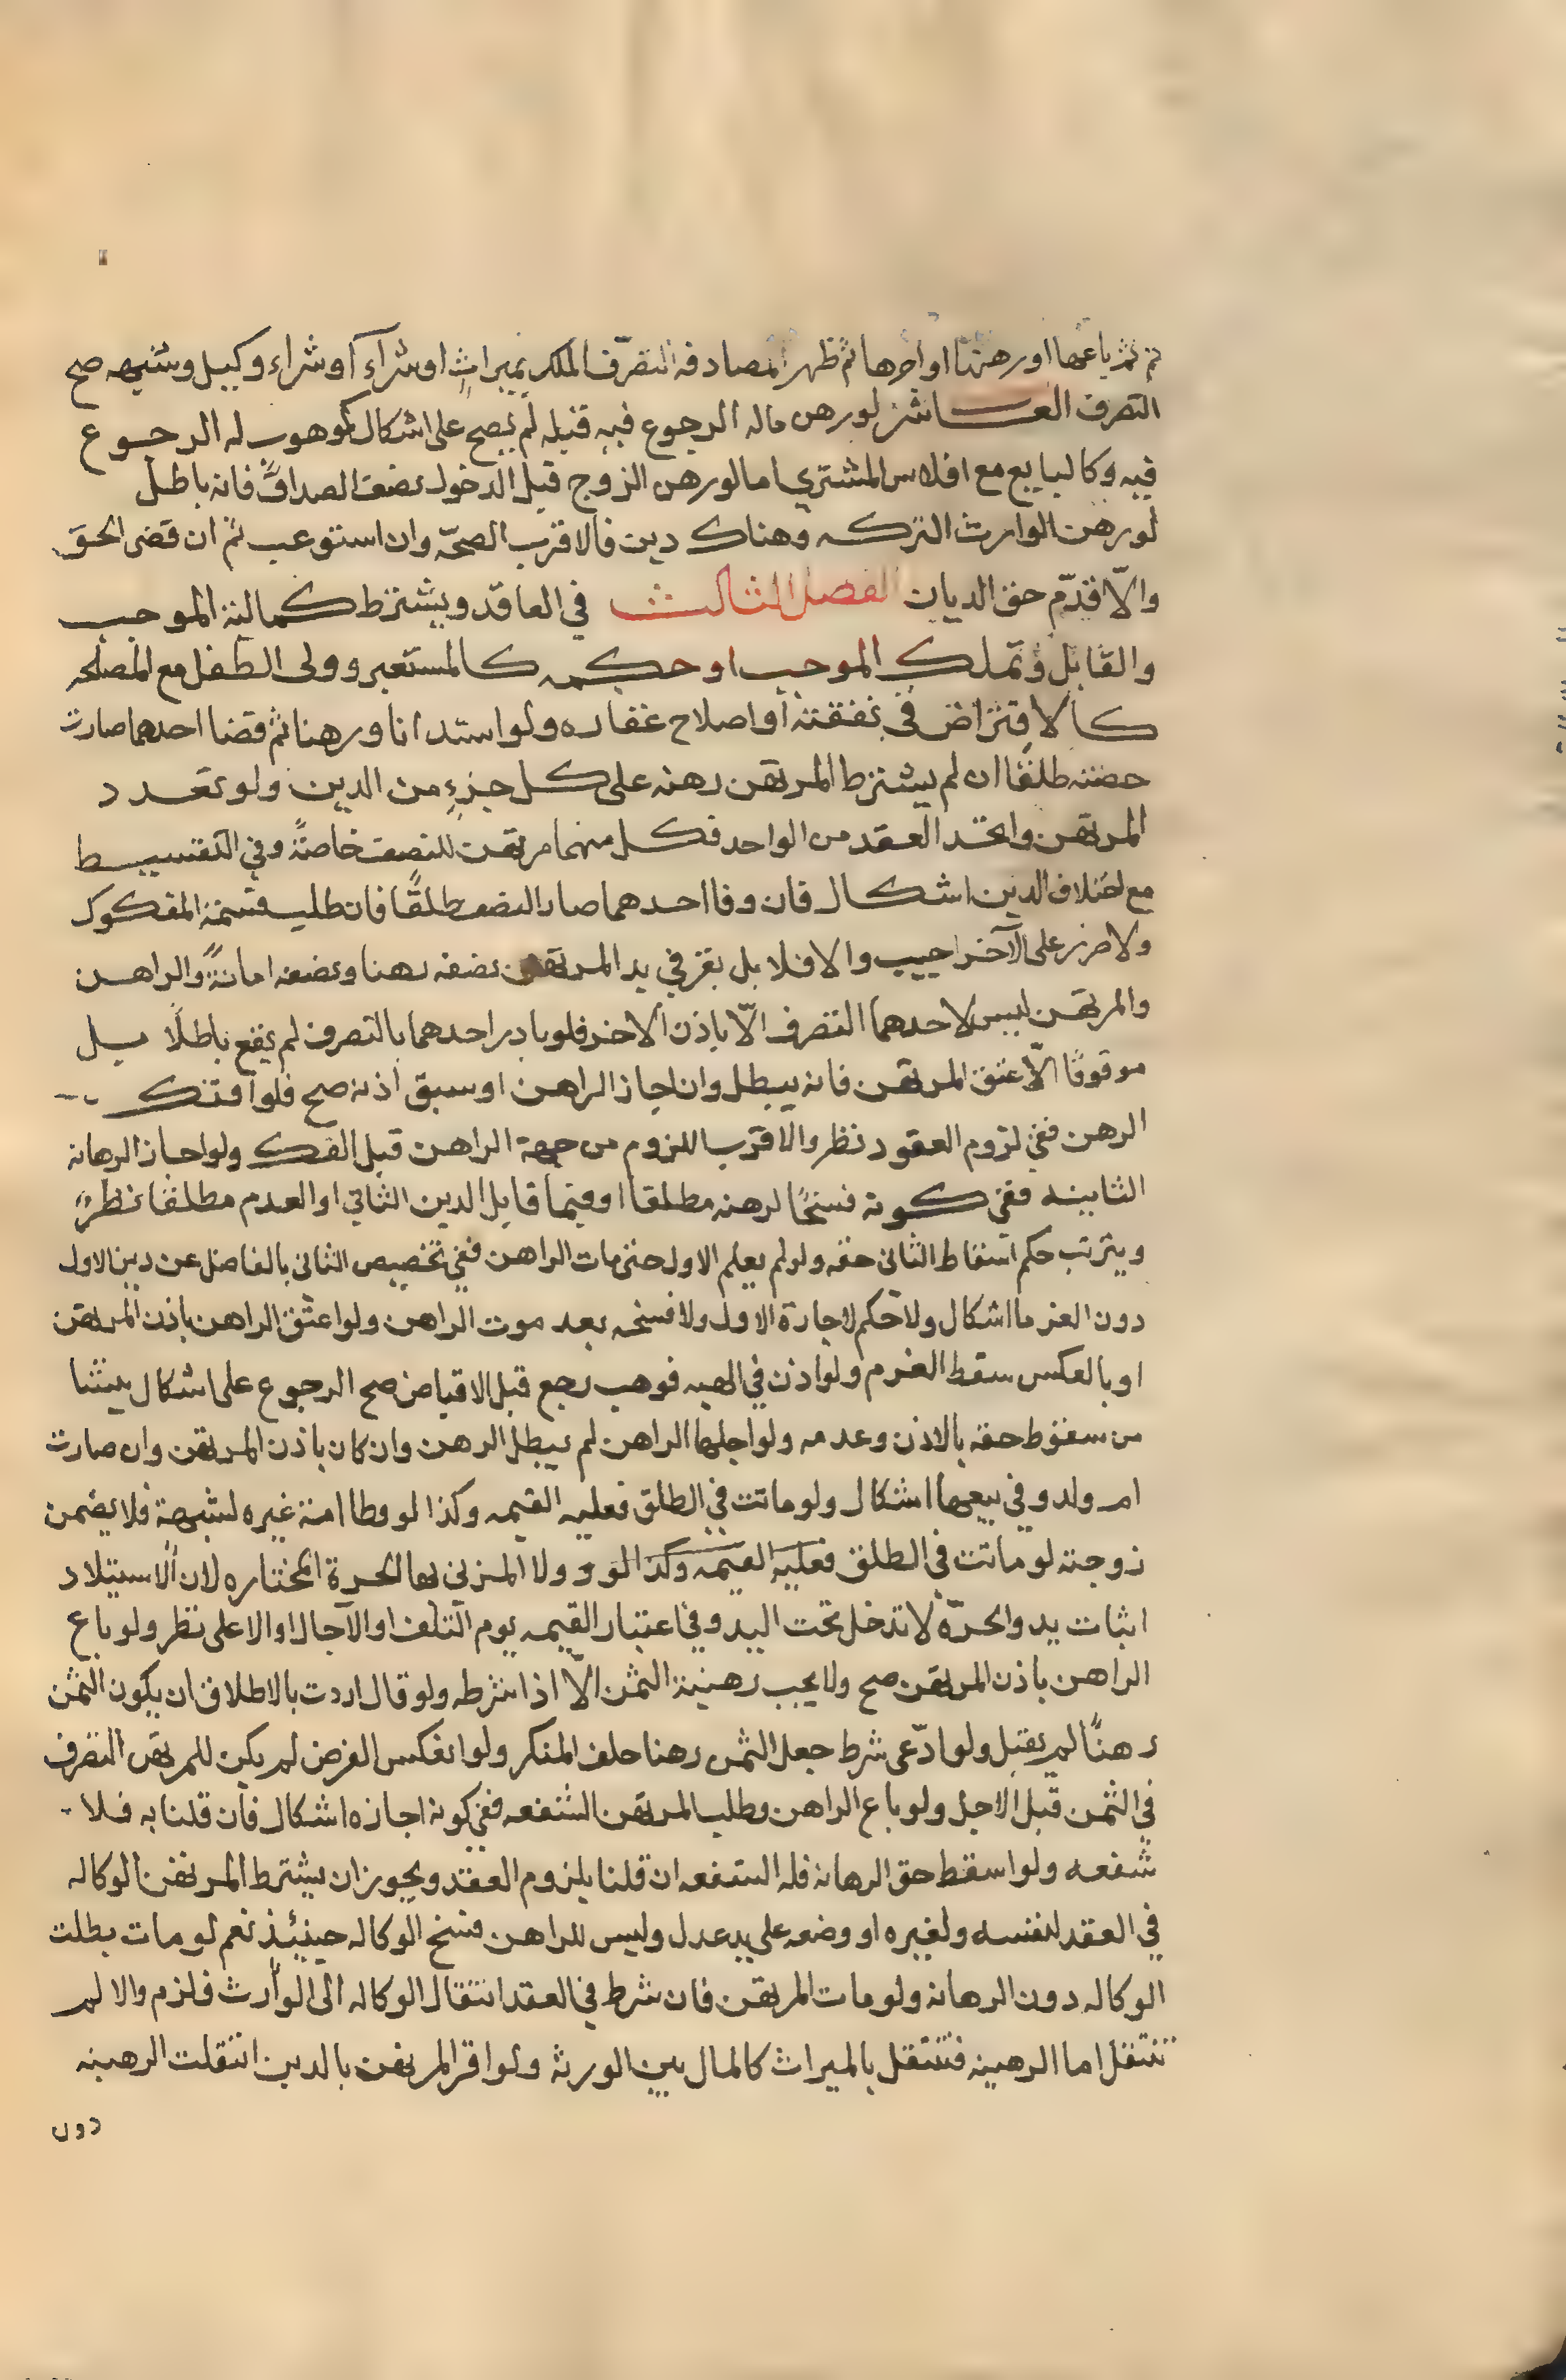 ثم باعها او رهنها او اجرها ثم ظهر المصادفة التصرف الملك بميراث او شراء او شراء وكيل وشبهه صح
التصرف العاشر لو رهن ماله الرجوع فيه قبله لم يصح على اشكال كموهوب له الرجوع
فيه وكالبايع مع افلاس المشتري اما لو رهن الزوج قبل الدخول نصف الصداق فانه باطل
لو رهن الوارث التركه وهناك دين فالاقرب الصحّه وان استوعب ثم ان قضى الحق
والّا قدّم حق الديان الفصل الثالث في العاقد ويشترط كمالية الموجب
والقابل وتملك الموجب او حكمه كالمستعير وولى الطفل مع المصلحه
كالاقتراض في نفقته او اصلاح عقاره ولو استدانا ورهنا ثم قضا احدهما صارت
حصته طلقًا ان لم يشترط المرتهن رهنه على كل جزءٍ من الدين ولو تعدد
المرتهن واتحد العقد من الواحد فكل منهما مرتهن للنصف خاصةً وفي التقسيط
مع اختلاف الدين اشكال فان وفا احدهما صار النصف طلقًا فان طلب قسمة المفكوك
ولا ضرر على الآخر اجيب والا فلا بل يقر في يد المرتهن نصفه رهنا ونصفه امانةً والراهن
والمرتهن ليس لاحدهما التصرف الّا باذن الاخر فلو بادر احدهما بالتصرف لم يقع باطلًا بل
موقوفًا الّا عتق المرتهن فانه يبطل وان اجاز الراهن او سبق اذنه صح فلو افتك
الرهن ففي لزوم العقود نظر والاقرب اللزوم من جهة الراهن قبل الفك ولو اجاز الرهانه
الثانيه ففي كونه فسخًا لرهنه مطلقا او فيما قابل الدين الثاني او العدم مطلقًا نظرٌ
ويترتب حكم اسقاط الثانى حقه ولو لم يعلم الاول حتى مات الراهن ففي تخصيص الثانى بالفاضل عن دين الاول
دون الغرما اشكال ولا حكم لاجازة الاول ولا فسخه بعد موت الراهن ولو اعتق الراهن باذن المرتهن
او بالعكس سقط الغرم ولو اذن في الهبه فوهب رجع قبل الاقباض صح الرجوع على اشكال ينشا
من سقوط حقه بالاذن وعدمه ولو احبلها الراهن لم يبطل الرهن وان كان باذن المرتهن وان صارت
ام ولد وفي بيعها اشكال ولو ماتت في الطلق فعليه القيمه وكذا لو وطا امة غيره لشبهة فلا يضمن
زوجته لو ماتت فى الطلق فعليه القيمه وكذا لو و ولا المزني بها الحرة المختاره لان الاستيلاد
اثبات يد والحرّة لا تدخل تحت اليد وفي اعتبار القيمه يوم التلف او الآحبال او الاعلى نظر ولو باع
الراهن باذن المرتهن صح ولا يجب رهنية الثمن الّا اذا شرطه ولو قال اردت بالاطلاق ان يكون الثمن
رهنًا لم يقبل ولو ادّعى شرط جعل الثمن رهنا حلف المنكر ولو انعكس الفرض لم يكن للمرتهن التصرف
في الثمن قبل الاجل ولو باع الراهن وطلب المرتهن الشفعه ففي كونه اجازه اشكال فان قلنا به فلا
شفعه ولو اسقط حق الرهانه فله الشفعه ان قلنا بلزوم العقد ويجوز ان يشترط المرتهن الوكاله
في العقد لنفسه ولغيره او وضعه على يد عدل وليس للراهن فسخ الوكاله حينئذ نعم لو مات بطلت
الوكاله دون الرهانه ولو مات المرتهن فان شرط في العقد انتقال الوكاله الى الوارث فلزم والا لم
تنتقل اما الرهينه فتنتقل بالميراث كالمال بين الورثة ولو اقر المرتهن بالدين انتقلت الرهينه
دون